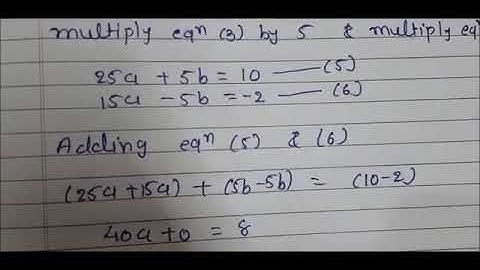 multiply eqn (3) by 5 & multiply eqn
25a + 5b = 10 —— (5)
15a - 5b = -2 —— (6)
Adding eqn (5) & (6)
(25a +15a) + (5b-5b) = (10-2)
40a +0 = 8